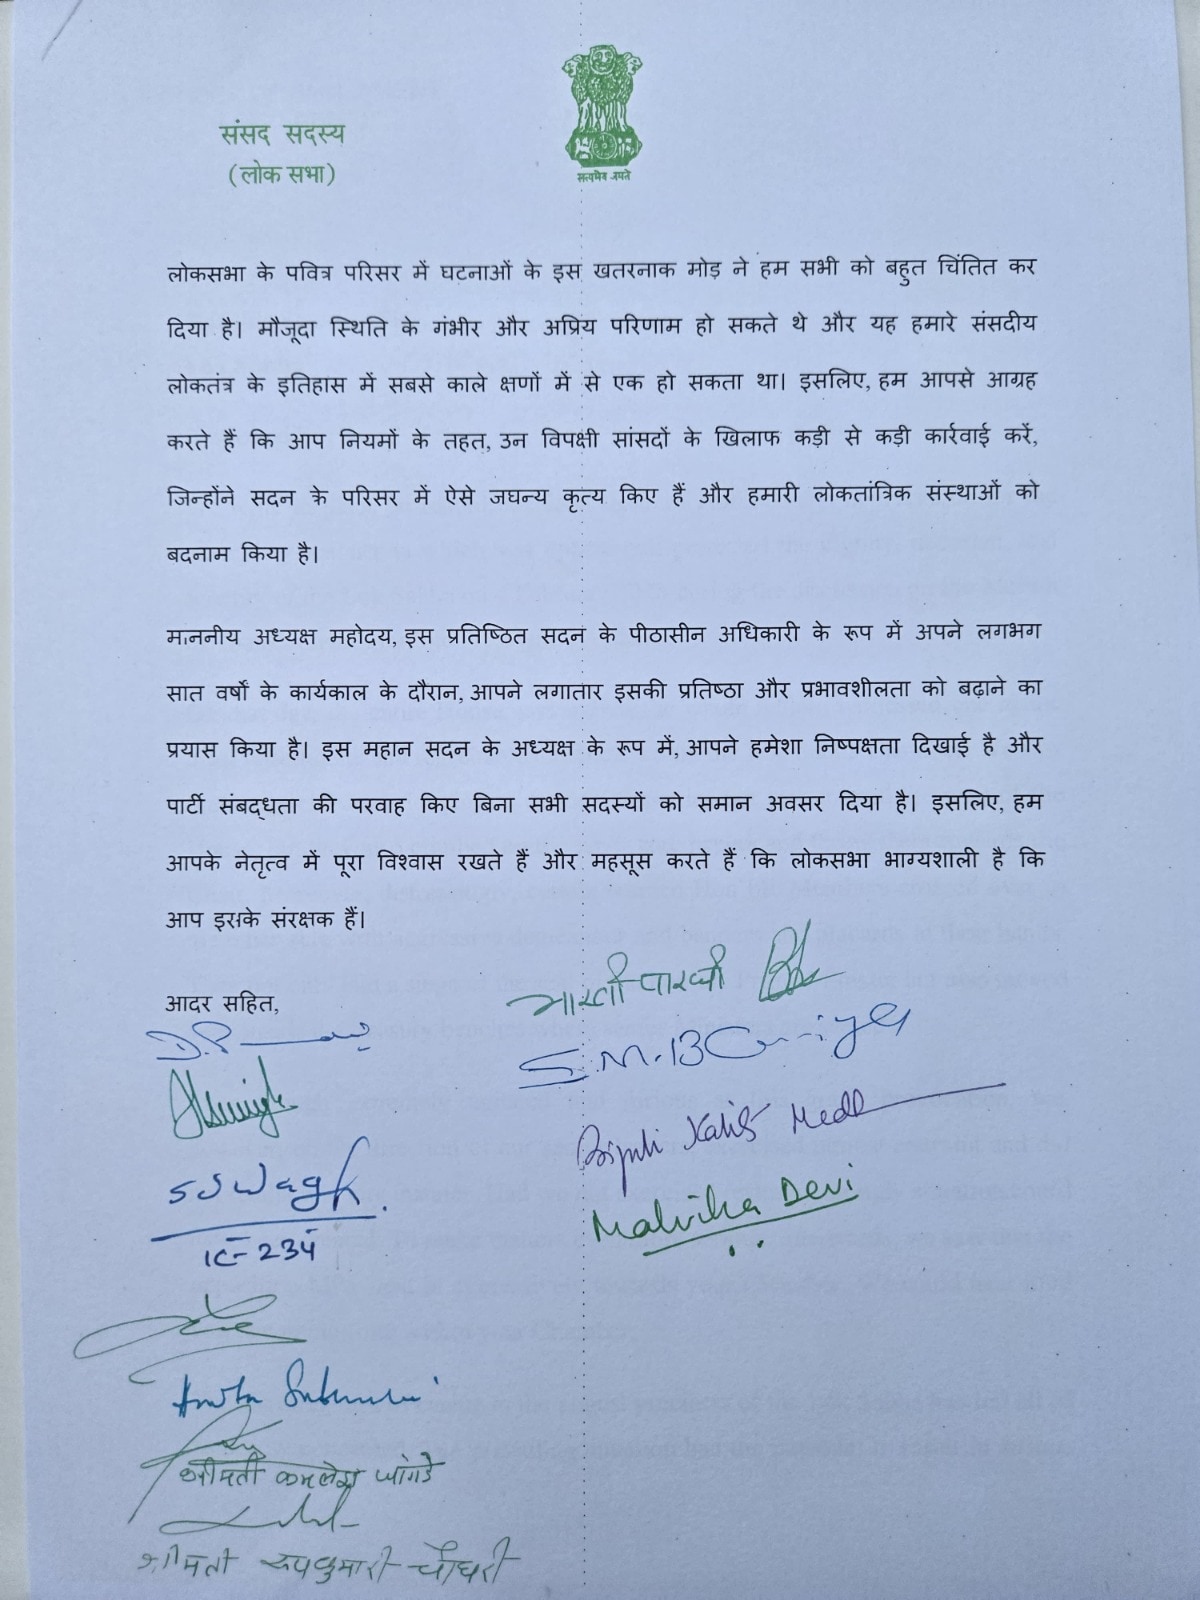 संसद सदस्य
(लोक सभा)
सत्यमेव जयते
लोकसभा के पवित्र परिसर में घटनाओं के इस खतरनाक मोड़ ने हम सभी को बहुत चिंतित कर
दिया है। मौजूदा स्थिति के गंभीर और अप्रिय परिणाम हो सकते थे और यह हमारे संसदीय
लोकतंत्र के इतिहास में सबसे काले क्षणों में से एक हो सकता था। इसलिए, हम आपसे आग्रह
करते हैं कि आप नियमों के तहत, उन विपक्षी सांसदों के खिलाफ कड़ी से कड़ी कार्रवाई करें,
जिन्होंने सदन के परिसर में ऐसे जघन्य कृत्य किए हैं और हमारी लोकतांत्रिक संस्थाओं को
बदनाम किया है।
माननीय अध्यक्ष महोदय, इस प्रतिष्ठित सदन के पीठासीन अधिकारी के रूप में अपने लगभग
सात वर्षों के कार्यकाल के दौरान, आपने लगातार इसकी प्रतिष्ठा और प्रभावशीलता को बढ़ाने का
प्रयास किया है। इस महान सदन के अध्यक्ष के रूप में, आपने हमेशा निष्पक्षता दिखाई है और
पार्टी संबद्धता की परवाह किए बिना सभी सदस्यों को समान अवसर दिया है। इसलिए, हम
आपके नेतृत्व में पूरा विश्वास रखते हैं और महसूस करते हैं कि लोकसभा भाग्यशाली है कि
आप इसके संरक्षक हैं।
आदर सहित,
भारती पारधी
S S Wagh
IC-234
श्रीमती कमलेश जांगडे
श्रीमती रूपकुमारी चौधरी
Malvika Devi